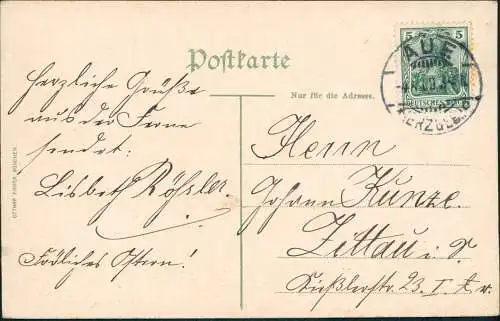 Postkarte
Nur für die Adresse.
Herzliche Grüße
aus der Ferne
sendet:
Lisbeth Röhsler.
Fröhliches Ostern!
Herrn
Johann Kunze.
Zittau i. S
23. I. t. r.
5 5
AUE
DEUTSCHES REICH
(ERZGEB.)
OTTMAR ZIEHER, MÜNCHEN.